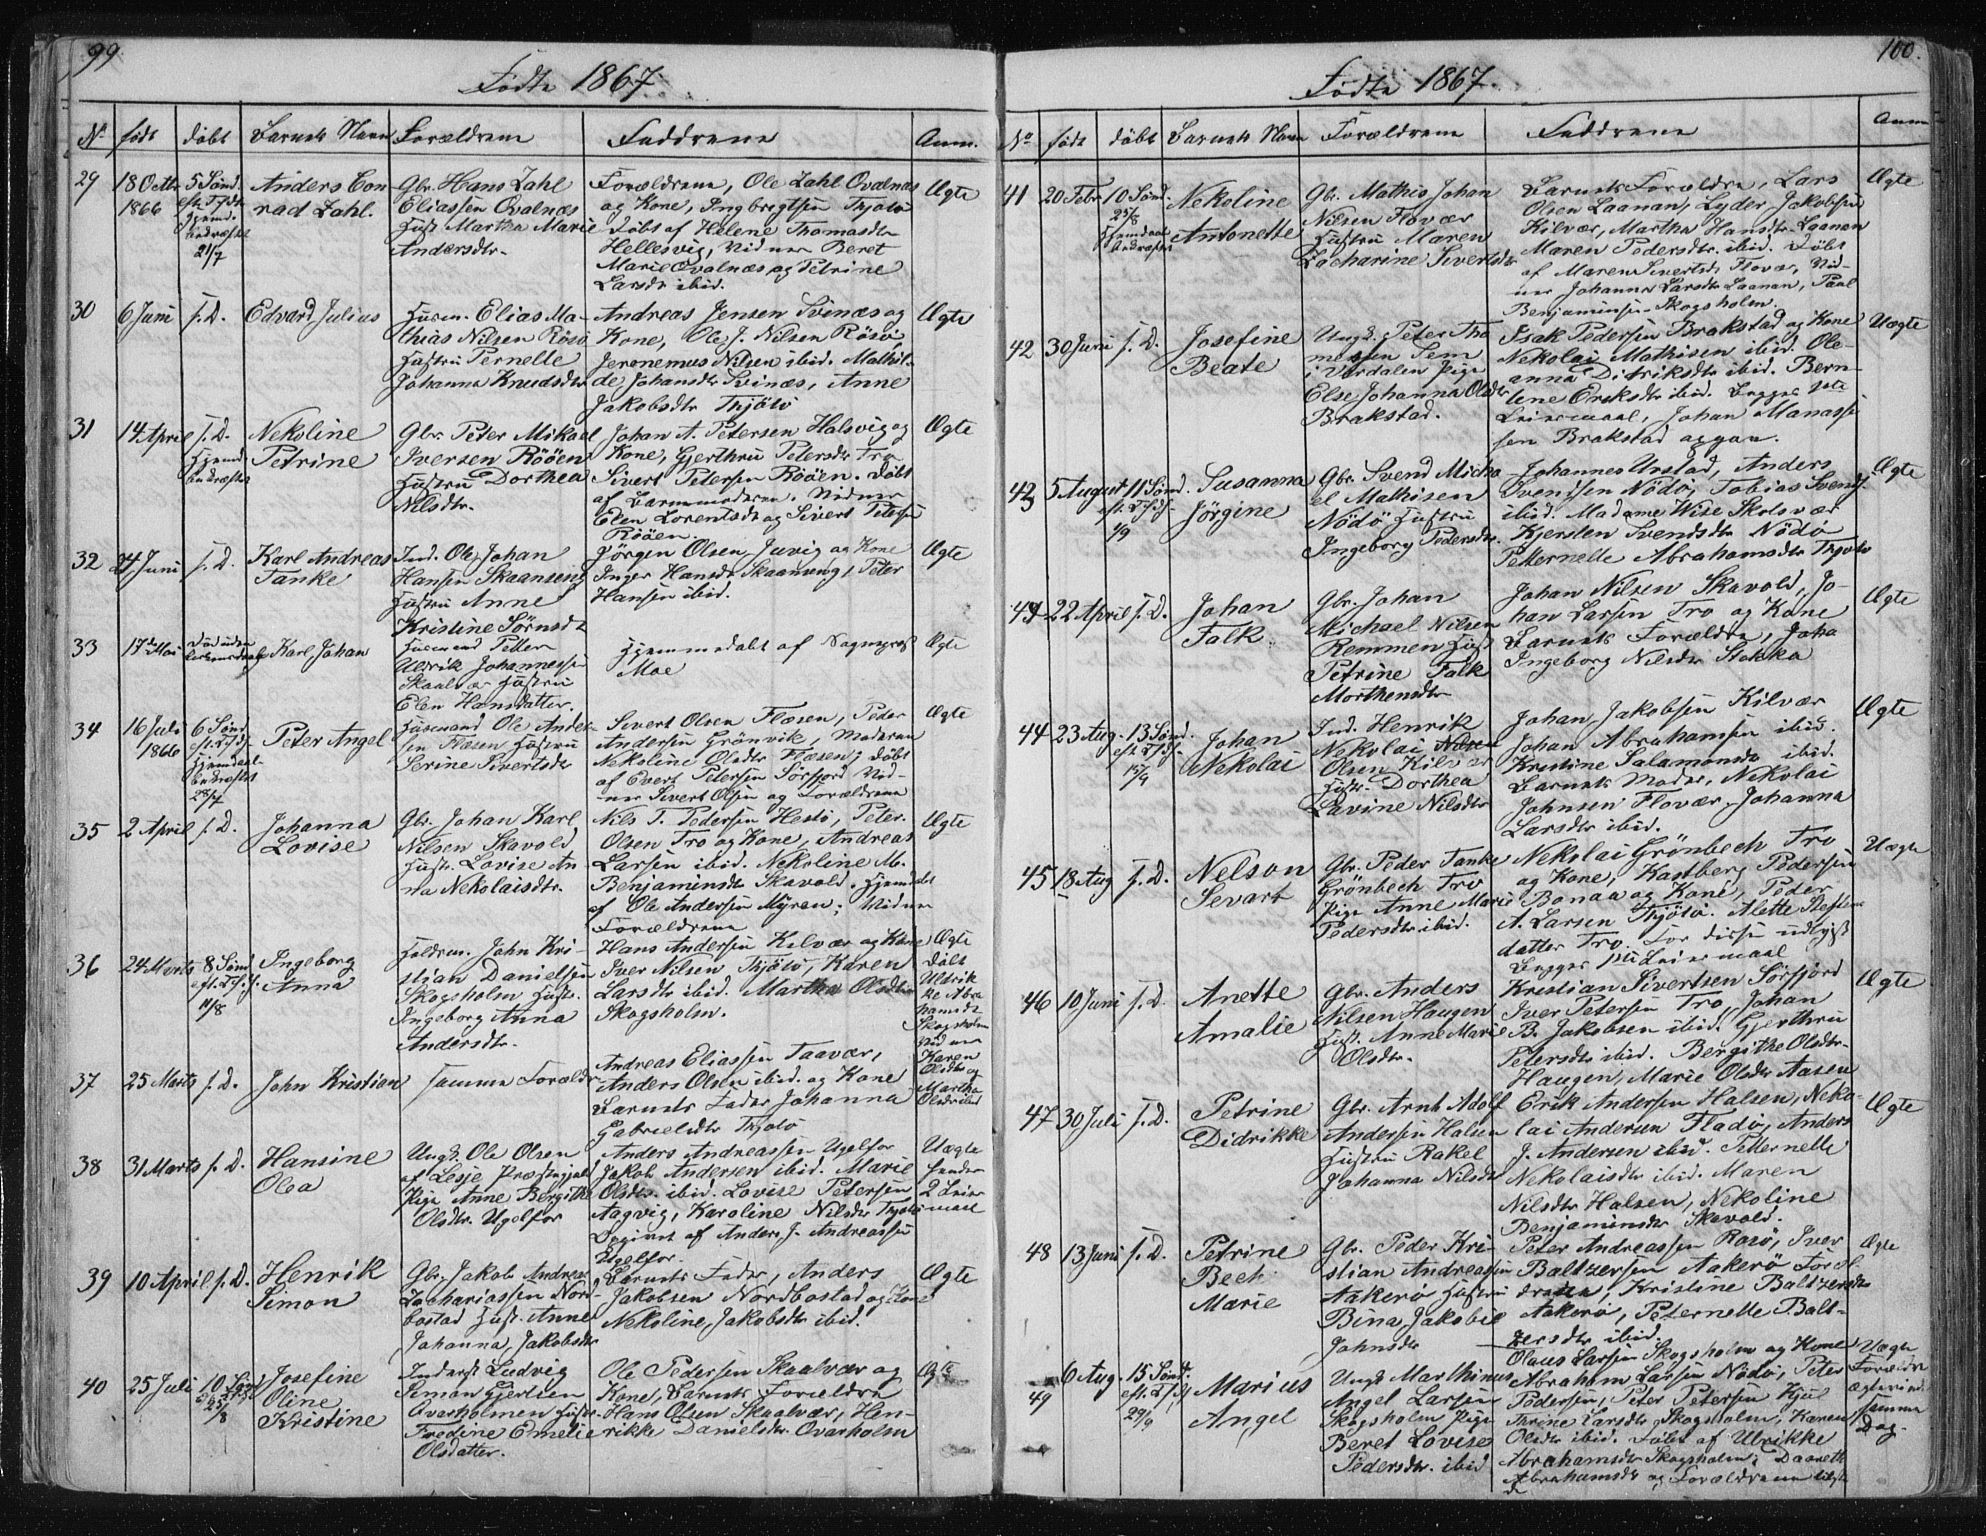 99.
Fødte 1867.
No født døbt Barnets Navn Forældrene Faddrene Anm.
29 18 Octbr 1866 5 Sønd. eft. Tr. hjemd. bekræftet 21/7
Anders Conrad Zahl.
Gbr. Hans Zahl
Eliassen Qvalnæs
Hust. Martha Marie
Andersdtr.
Forældrene, Ole Zahl Qvalnæs
og Kone, Ingbregtsen Thjøtø
Døbt af Helene Thomasdtr
Hellesvig, Vidner Beret
Marie Qvalnæs og Petrine
Larsdtr ibid.
Ægte
30 6 Juni s. D. Edvard Julius
Husm. Elias Ma-
thias Nilsen Rösö
Hustru Pernelle
Johanna Knudsdtr
Andreas Jensen Svinæs og
Kone, Ole J. Nilsen Rösö,
Jeronemus Nilsen ibid. Mathil-
de Johansdtr Svinæs, Anne
Jakobsdtr Thjötö
Ægte
31 14 April s. D. hjemd. bekræftet
Nekoline
Petrine
Gbr. Peter Mikael
Iversen Rööen
Hustru Dorthea
Nilsdtr.
Johan A. Petersen Halsvig og
Kone, Gjerthru Petersdtr Tro
Sivert Petersen Rööen. Döbt
af Barnemoderen. Vidner
Elen Lorentsdtr og Sivert Peters
Rööen.
Ægte
32 24 Juni s. D. Karl Andreas
Tanke
Ind. Ole Johan
Hansen Skaanseng
Hustru Anne
Kristine Sörnsdtr
Jörgen Olsen Juvig og Kone
Inger Hansdtr Skaanseng, Peter
Hansen ibid.
Ægte
33 17de Mai Død uden
Karl Johan
Husmand Petter
Ulrik Johannessen
Skaalvær Hustru
Elen Hansdatter.
Hjemmedøbt af Sogneprest
Moe
Ægte
34 16 Juli 1866 6 Sönd. eft. Tr. hjemdøbt bekræftet 28/7
Peter Angel
Husmand Ole Ander-
sen Flæsen Hustru
Serine Sivertsdtr
Sivert Olsen Flæsen, Peder
Andersen Grönvik, Moderen
Nekoline Olsdtr Flæsen; døbt
af Evert Petersen Sörfjord Vid-
ner Sivert Olsen og Forældrene
Ægte
35 2 April s. D. Johanna
Lovise
Gbr. Johan Karl
Nilsen Skavold
Hustr. Lovise An-
na Nekolaisdtr.
Nils T. Pedersen Hestö, Peter
Olsen Tro og Kone, Andreas
Larsen ibid. Nekoline M.
Benjaminsdtr Skavold. Hjemdöbt
af Ole Andersen Myren; Vidner
Forældrene
Ægte
36 24 Marts 8 Sönd eft. Tr. f. 11/8
Ingeborg
Anna
John Kri-
stian Danielsen
Skogsholm Hustr.
Ingeborg Anna
Andersdtr.
Hans Andersen Kilvær og Kone
Iver Nilsen Thjötö, Karen
Larsdtr ibid. Martha Olsdtr
Skogsholm.
Ægte
Döbt
Ulrik-
ke Abra
hamsdtr
Skogsholm
Vidner
Karen
Olsdtr og
Martha
Olsdtr ibid
37 25 Marts s. D. John Kristian Samme Foreldr
Andreas Eliassen Taavær,
Anders Olsen ibid. og Kone
Barnets Fader Johanna
Gabrielsdtr Thjötö
38 31 Marts s. D. Hansine
Olea
Ungk. Ole Olsen
af Lesje Præstegjæld
Pige Anne Bergithe
Olsdtr. Ugelfor
Anders Andreassen Ugelfor
Jakob Andersen ibid. Marie
Olsdtr. ibid. Lovise Petersen
Aagvig, Karoline Nilsdtr Thjøtø
Opgivet af Anders J. Andreassen
Ugelfor.
Uægte
hendes
2 Leier
maal
39 10 April s. D. Henrik
Simon
Gbr. Jakob Andreas
Zachariassen Nord-
bostad Hust. Anne
Johanna Jakobsdtr
Barnets Fader, Anders
Jakobsen Nordbostad og Kone
Nekoline Jakobsdtr ibid.
Ægte
40 25 Juli 10 Sönd 25/8
Josefine
Oline
Kristine
Inderst Ludvig
Simon Gjertsen
Qvarholmen Hustr.
Fredine Emelie
Olsdatter.
Ole Pedersen Skaalvær og
Kone, Barnets Forældre
Hans Olsen Skaalvær, Hen-
rikke Danielsdtr Qvarholm
Ægte
100.
Fødte 1867.
No født døbt Barnets Navn Forældrene Faddrene Anm
41 20 Febr 10 Sönd. 25/8 hjemdøbt bekræftet
Nekoline
Antonette
Gbr. Mathis Johan
Nilsen Flovær
Hustru Maren
Zacharine Sivertsdtr
Barnets Forældre, Lars
Olsen Laanan, Lyder Jakobsen
Kilvær, Martha Hansdtr Laanan
Maren Pedersdtr. ibid. Döbt
af Maren Sivertsdtr Flovær, Vid-
ner Johanna Larsdtr Laanan, Paal
Benjaminsen Skogsholm.
Ægte
42 30 Juni s. D. Josefine
Beate
Ungk. Peter Tho
mesen Sem
i Værdalen Pige
Else Johanna Olsdtr
Brakstad.
Isak Pedersen Brakstad og Kone
Nekolai Mathisen ibid. Ole-
anna Didriksdtr ibid. Bern-
tine Eriksdtr ibid. Begges 1ste
Leiermaal, Johan Manasse
sen Brakstad opgav.
Uægte
43 5 August 11 Sönd. eft. Tr. 1/9
Susanna
Jörgine
Gbr. Svend Micka
el Mathisen
Nödö Hustru
Ingeborg Pedersdtr.
Johannes Urstad, Anders
Svendsen Nödö, Tobias Svends
ibid. Madame Wise Skolsvær
Kjersten Svendsdtr Nödö
Petternelle Abrahamsdtr Thjøtø
Ægte
22 April s. D. Johan
Falk.
Gbr. Johan
Michael Nilsen
Remmen Hust
Petrine Falk
Morthensdtr
Johan Nilsen Skavold, Jo-
han Larsen Tro og Kone
Barnets Forældre, Joha
Ingeborg Nilsdtr Stokka
Ægte
44 23 Aug. 13 Sönd. eft. Tr. 15/9
Johan
Nekolai
Ind. Henrik
Nekolai
Olsen Kilvær
Hustr. Dorthea
Lavine Nilsdtr
Johan Jakobsen Kilvær
Johan Abrahamsen ibid.
Kristine Salamonsdtr ibid.
Barnets Moder, Nekolai
Johnsen Flovær, Johanna
Larsdtr ibid.
Ægte
45 18 Aug s. D. Nelson
Sevart
Gbr. Peder Tanke
Grönbech Tro
Pige Anne Marie
Pedersdtr ibid.
Nekolai Grönbech Tro
og Kone, Kastberg Pedersen
Bonaa og Kone, Peder
A. Larsen Thjötö. Alette Steffens
datter Tro. For disse udlyst
Begges 1ste Leiermaal
Uægte
46 10 Juni s. D. Anette
Amalie
Gbr. Anders
Nilsen Haugen
Hust. Anne Marie
Olsdtr.
Kristian Sivertsen Sörfjord
Iver Petersen Tro, Johan
B. Jakobsen ibid. Gjerthru
Petersdtr ibid. Bergithe Olsdtr-
Haugen, Marie Olsdtr Aasen
Ægte
47 30 Juli s. D. Petrine
Didrikke
Gbr. Arnt Adolf
Andersen Halsen
Hustru Rakel
Johanna Nilsdtr
Erik Andersen Halsen, Neko-
lai Andersen Fladö, Anders
J. Andersen ibid. Petternelle
Nekolaisdtr ibid. Maren
Nilsdtr Halsen, Nekoline
Benjaminsdtr Skavold.
Ægte
48 13 Juni s. D. Petrine
Bech
Marie
Gbr. Peder Kri-
stian Andreassen
Aakerö Hustru
Bina Jakobie
Jahnsdtr
Peter Andreassen Rosö, Iver
Baltzersen Aakerö Foræl-
drene, Kristine Baltzersdtr
Aakerö, Peternelle Balt-
zersdtr ibid.
Ægte
49 6 Aug. 15 Sönd. eft. Tr. 29/9
Marius
Angel
Ungk. Marthinus
Angel Larsen
Skogsholm Pige
Beret Lovise
Pedersdtr. ibid
Olaus Larsen Skogsholm og Kone
Abraham Larsen Nödö, Peter
Pedersen, Peter Petersen Hjul
Thrine Larsdtr Skogsholm, Karen
Olsdtr ibid. Döbt af Ulrikke
Abrahamsdtr Skogsholm; Daarette
Abrahamsdtr og Forældrene
Uægte
Forældre
ægteviet
samme
Dag.